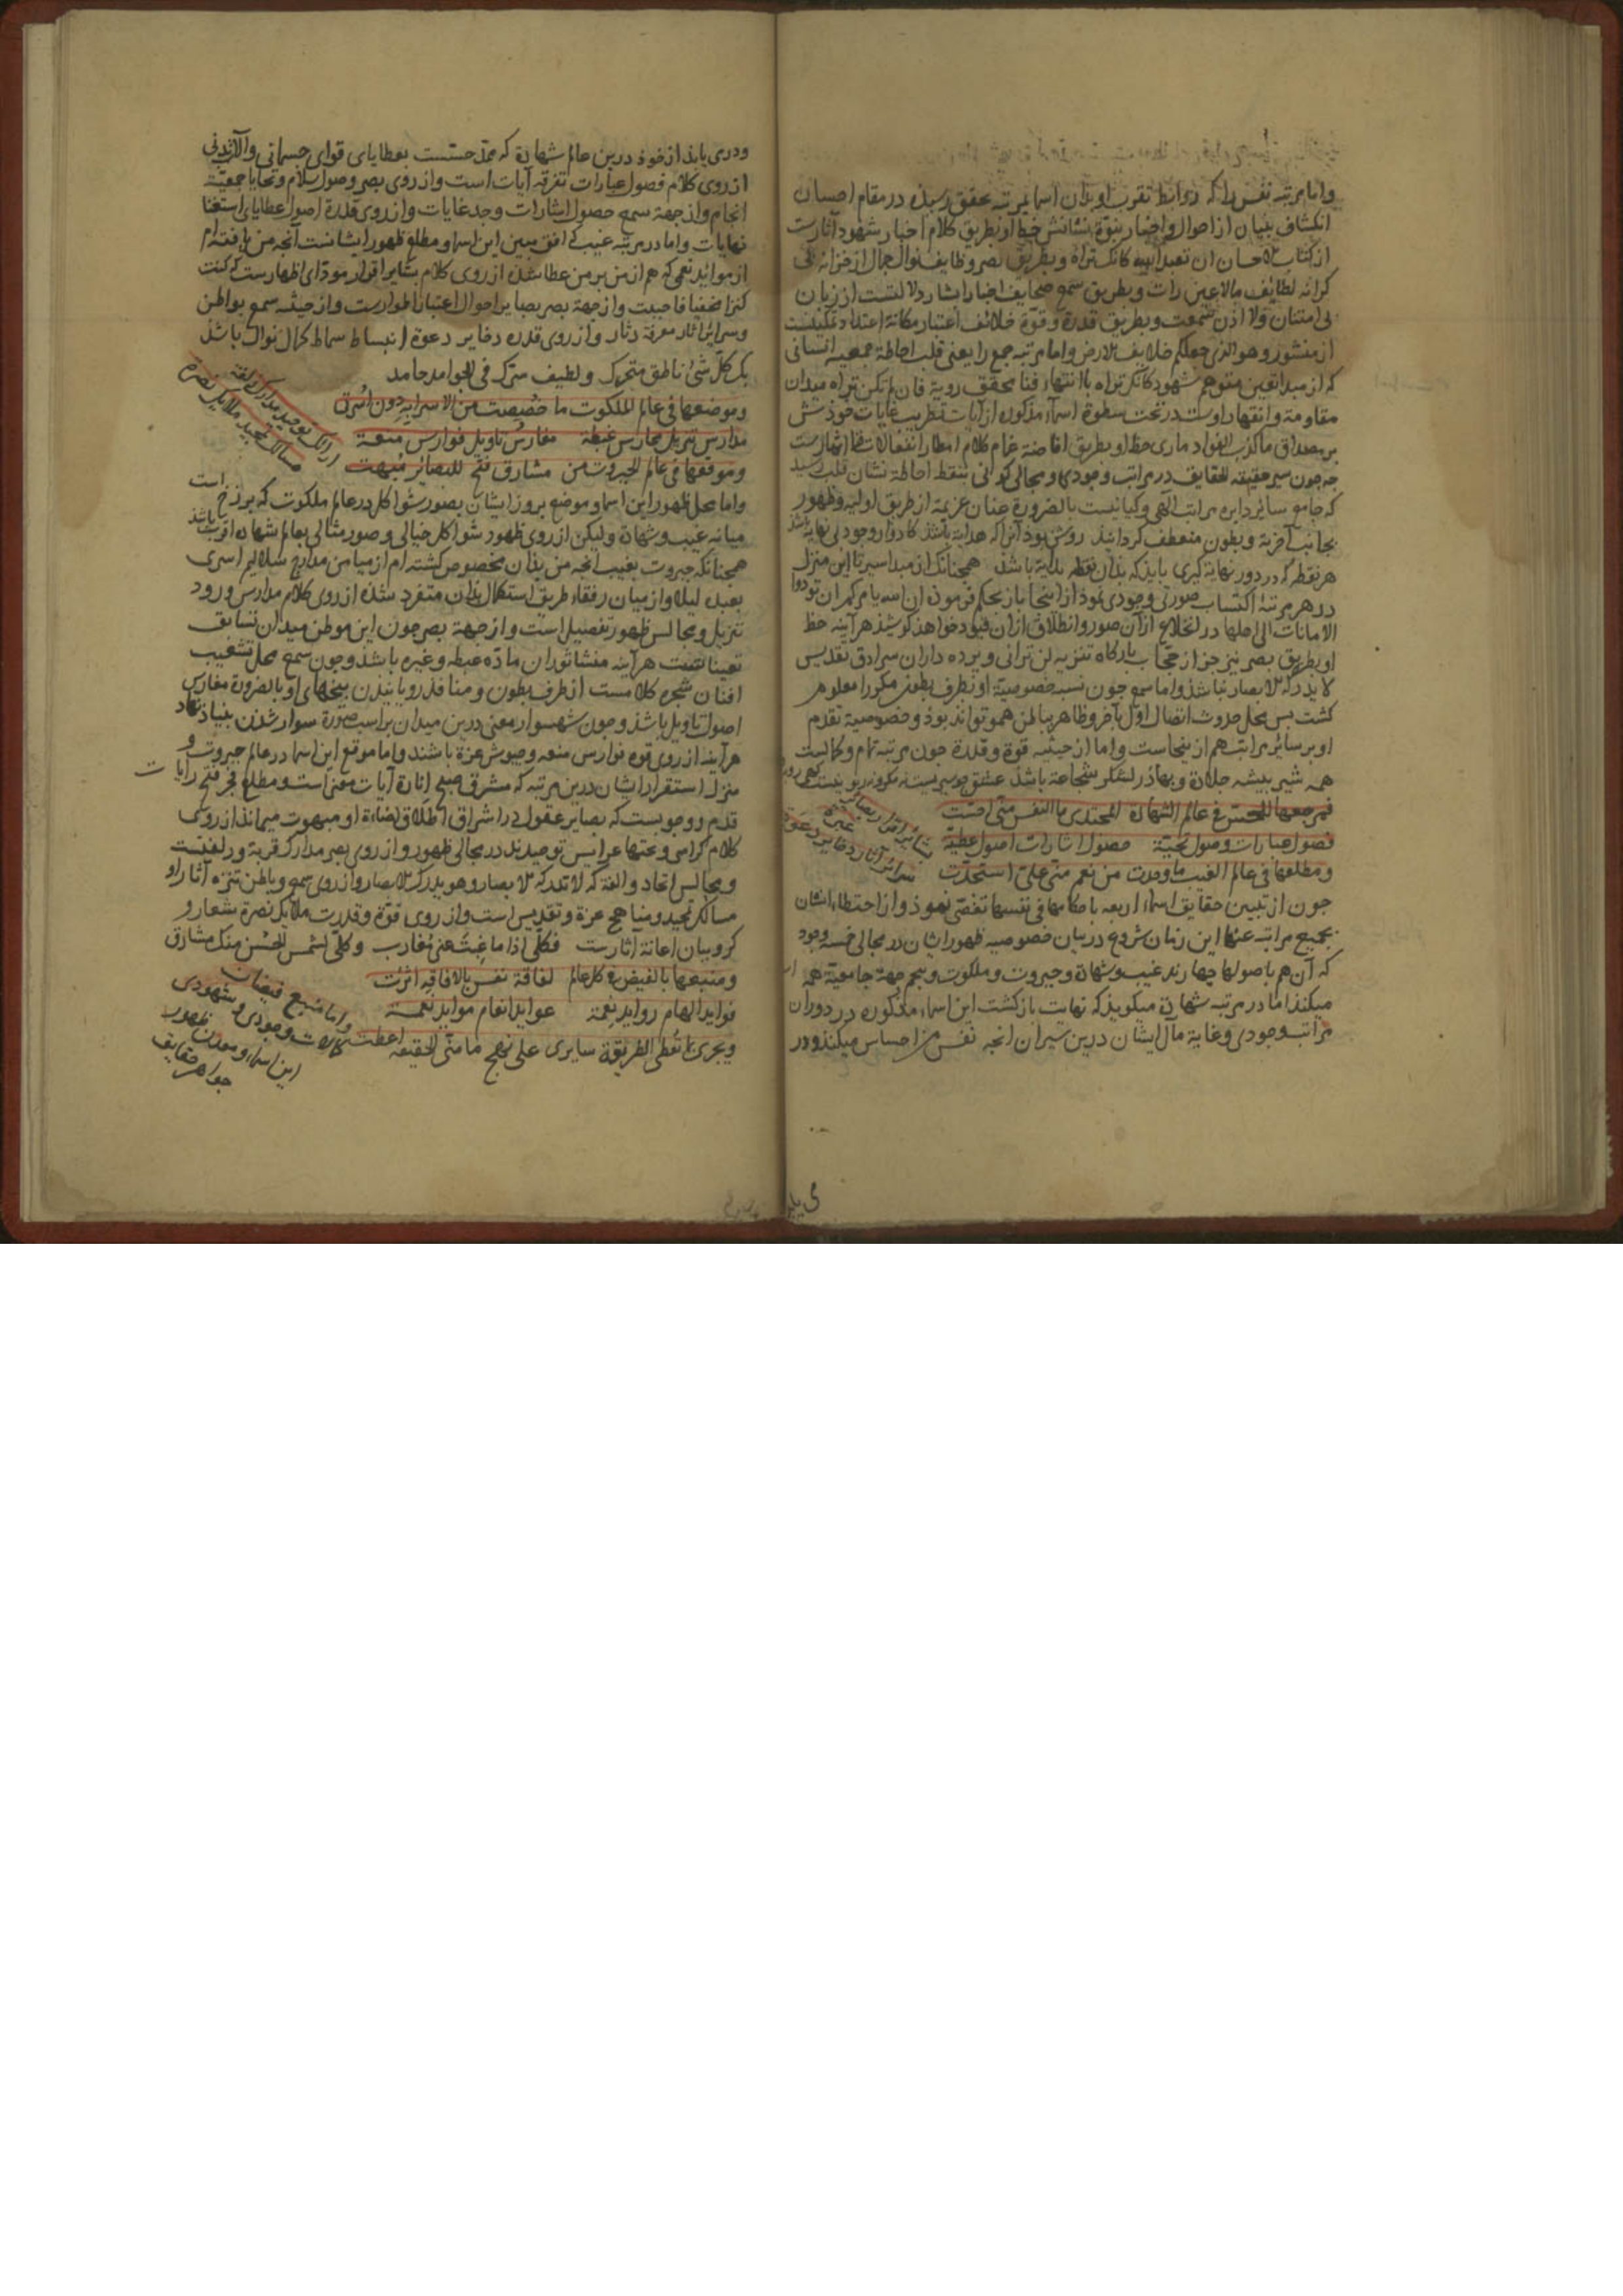 واما مرتبه نفس را که روابط تقرب او بذان اسما بمرتبه تحقق رسیذه در مقام احسان
انکشاف بنیان از احوال و اخبار بنوة نشانش خط او بطریق کلام اخبار شهود آثارست
از کتاب الاحسان ان تعبد الله کانک تراه و بطریق بصر وظایف نوال جمال از خزانه
کرانه لطایف مالا عین رات و بطریق سمع صحایف اخبار ابشار دلالتست از زبان
بی امتنان ولا اذن سمعت و بطریق قدرة و قوة خلائف اعتبار مکانة اعتداد
از منشور و هو الذی جعلکم خلایف الارض واما مرتبه جمع را یعنی قلب احاطة جمعیه انسانی
که از مبدا تعین متوهم شهود کانک تراه باانتهاء فنا محقق رویة فان لم تکن تراه میدان
مقاومة و انقهار اوست در تحت سطوة اسماء مذکوره از آیات تطریب غایات خوذش
بر مصداق ما کذب الفواد ما رای حظ او بطریق افاضة غمام کلام امطار انفعالات
جه جون سیر حقیقة الحقایق در مراتب وجودی و مجالی کونی بنقطه احاطة نشان قلب رسید
که جامع سائر دایره مراتب الهی و کیانیست بالضرورة عنان عزیمة از طریق اولیه و ظهور
بجانب آخریة و بطون منعطف کردانید روشن بود آنرا که هدایة باشذ که ادوار وجودی
هر نقطه که در دور نهایة کبری بایذ که بذان نقطه بدایة باشذ همجنانک از مبدا سیر تا این منزل
در هر مرتبه اکتساب صورتی وجودی نمود از اینجا باز بحکم فرموذه ان الله یامرکم ان تودوا
الامانات الی اهلها در انخلاع از آن صور و انطلاق از آن قیود خواهذ کوشیذ هرآینه حظ
او بطریق بصر نیز جز از حجاب بارکاه تنزیه لن ترانی و برده داران سرادق تقدیس
لا یدرکه الابصار نباشذ واما سمع جون نسبه خصوصیة او بطرف بطون مکررا معلوم
کشت بس محل حدوث اتصال اول بآخر و ظاهر بباطن همو تواند بوذ و خصوصیة تقدم
او بر سائر مراتب هم از ینجاست واما از حیثیه قوة و قدرة جون مرتبه تمام و کمالست
همه شیر بیشه جلادة و بهادر لشکر شجاعة باشذ
فمرجعها للحس فی عالم الشهادة المجتدی ما النفس منی احست
فصول عبارات وصول تحیة حصول اشارات اصول عطیة
ومطلعها فی عالم الغیب ما وجدت من نعم منی علی استجدت
بشایر اقرار بصایر عبرة
سرائر آثار دخایر دعوة
جون از تبیین حقایق اسماء اربعه باحکامها فی نفسها تفصی نمود و از احتظاء ایشان
بجمیع مراتبه عنها این زمان شروع در بیان خصوصیه ظهور ایشان در مجالی خمسه وجود
که آن هم باصولها چهارند غیب و شهادة و جبروت و ملکوت و پنجم جهة جامعیة همه
میکند اما در مرتبه شهادة میکویذ که نهایت بازکشت این اسماء مذکوره در دوران
مراتب وجودی و غایة مآل ایشان درین سیران آنچه نفس من احساس میکند و در
ودری یابذ از خوذ درین عالم شهادة که محل حسست بعطایای قوای جسمانی و آلات بدنی
از روی کلام فصول عبارات تفرقه آیات است و از روی بصر وصول سلام و تحایا جمعیة
انجام و از جهة سمع حصول اشارات وجد غایات و از روی قدرة اصول عطایای استغنا
نهایات واما در مرتبه غیب که افق مبین این اسما و مطلع ظهور ایشانست آنچه من یافته ام
از مواید نعمی که هم از من بر من عطا شذه از روی کلام بشایر اقرار مودای اظهارست که کنت
کنزا مخفیا فاحببت و از جهة بصر بصایر احوال اعتبار اطوارست و از حیثیه سمع بواطن
وسرایر آثار معرفة دثار و از روی قدره دخایر دعوة انبساط سماط کمال نوال باشذ
بک کل شیء ناطق متحرک ولطیف سرک فی الجوامد جامد
وموضعها فی عالم الملکوت ما خصصت من الاسرا به دون اسرتی
مدارس تنزیل محارس غبطة مغارس تاویل فوارس منعة
وموقعها فی عالم الجبروت من مشارق فتح للبصائر مبهت
ارائک توحید مدارک زلفة
مسالک تمجید ملایک نصرة
واما محل ظهور این اسما و موضع بروز ایشان بصور شواکل در عالم ملکوت که برزخ است
میانه غیب و شهادة ولیکن از روی ظهور شواکل خیالی و صور مثالی بعالم شهاده اقرب باشذ
همجنانکه جبروت بغیب آنچه من بذان مخصوص کشته ام از میامن مدارج سلالیم اسری
بعبده لیلا و از میان رفقاء طریق استکمال بذان متفرد شذه از روی کلام مدارس ورود
تنزیل و مجالس ظهور تفصیل است و از جهة بصر جون این موطن میدان تسابق
تعینا تست هرآینه منشا ثوران ماده غبطه و غیره باشذ وجون سمع محل تشعیب
افنان شجره کلامست از طرف بطون و منافذ رویانیدن بیخهای او بالضرورة مغارس
اصول تاویل باشذ وجون شهسوار معنی درین میدان بر اسب صورة سوار شذن بنیاذ نهاد
هرآینه از روی قوه فوارس منعه و جیوش عزة باشند واما موقع این اسما در عالم جبروت و
منزل استقرار ایشان درین مرتبه که مشرق صبح انارة آیات معنی است و مطلع فجر فتح رایات
قدم و وجوبست که بصایر عقول در اشراق اطلاق اضاءة او مبهوت میماند از روی
کلام کراسی و تختها عرائس توحیدند در مجالی ظهور و از روی بصر مدارک قربة و زلفیست
و مجالس اتحاد والفة که لا تدرکه الابصار و هو یدرک الابصار و از روی سمع و باطن تنزه آثار او
مسالک تمجید و مناهج عزة و تقدیس است و از روی قوة و قدرت ملایک نصرة شعار و
کروبیان اعانة آثارست فکلی اذا ما غبت عنی مغارب وکلی لشمس الحسن منک مشارق
ومنبعها بالفیض فی کل عالم لفاقة نفس بالافاقة اثرت
فواید الهام روایذ نعمة عواید انعام مواید نعمة
ویجری بما تعطی الطریقة سایری علی نهج ما منی الحقیقة اعطت
واما منبع فیضان
کمالات وجودی و شهودی
این اسماء و معدن ظهور
جواهر حقایق